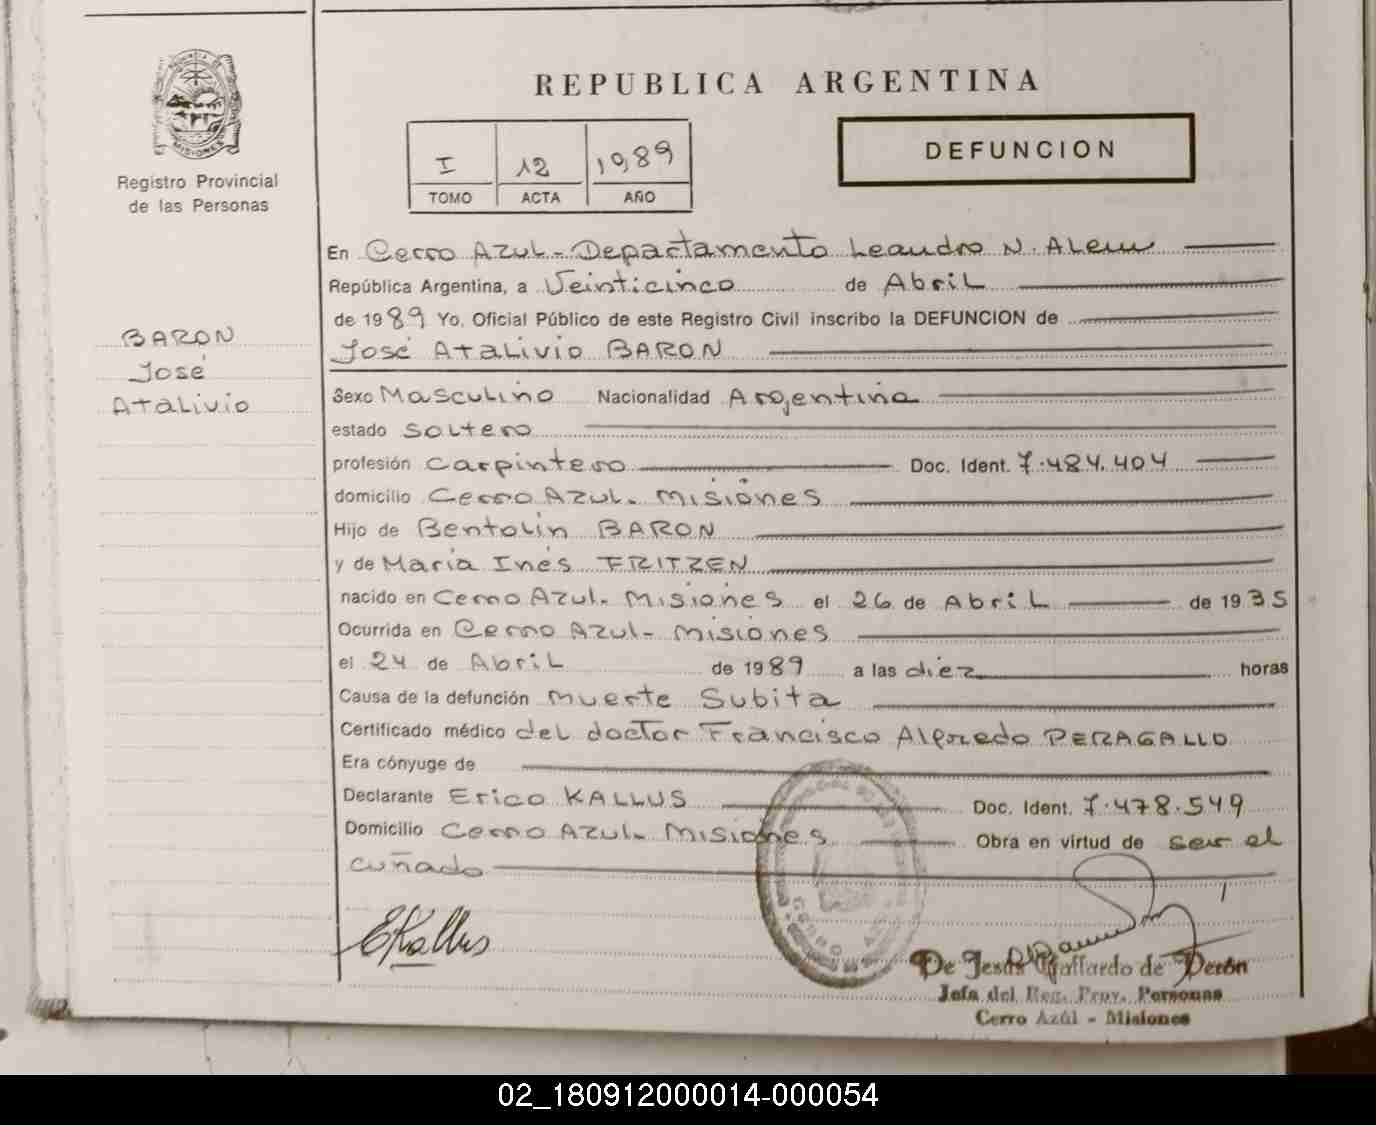 REPUBLICA ARGENTINA
PROVINCIA DE
MISIONES
Registro Provincial
de las Personas
I 12 1989
TOMO ACTA AÑO
DEFUNCION
BARON
José
Atalivio
En Cerro Azul - Departamento Leandro N. Alem
República Argentina, a Veinticinco de Abril
de 1989 Yo, Oficial Público de este Registro Civil inscribo la DEFUNCION de
José Atalivio BARON
Sexo Masculino Nacionalidad Argentina
estado soltero
profesión carpintero Doc. Ident. 7.484.404
domicilio Cerro Azul. Misiones
Hijo de Bentolin BARON
y de María Inés FRITZEN
nacido en Cerro Azul. Misiones el 26 de Abril de 1935
Ocurrida en Cerro Azul - Misiones
el 24 de Abril de 1989 a las diez horas
Causa de la defunción muerte Subita
Certificado médico del doctor Francisco Alfredo PERAGALLO
Era cónyuge de
Declarante Erico KALLUS Doc. Ident. 7.478.549
Domicilio Cerro Azul. Misiones Obra en virtud de ser el
cuñado
EKallus
CERRO AZUL
De Jesús Gallardo de Perón
Jefa del Reg. Prov. Personas
Cerro Azúl - Misiones
02_180912000014-000054